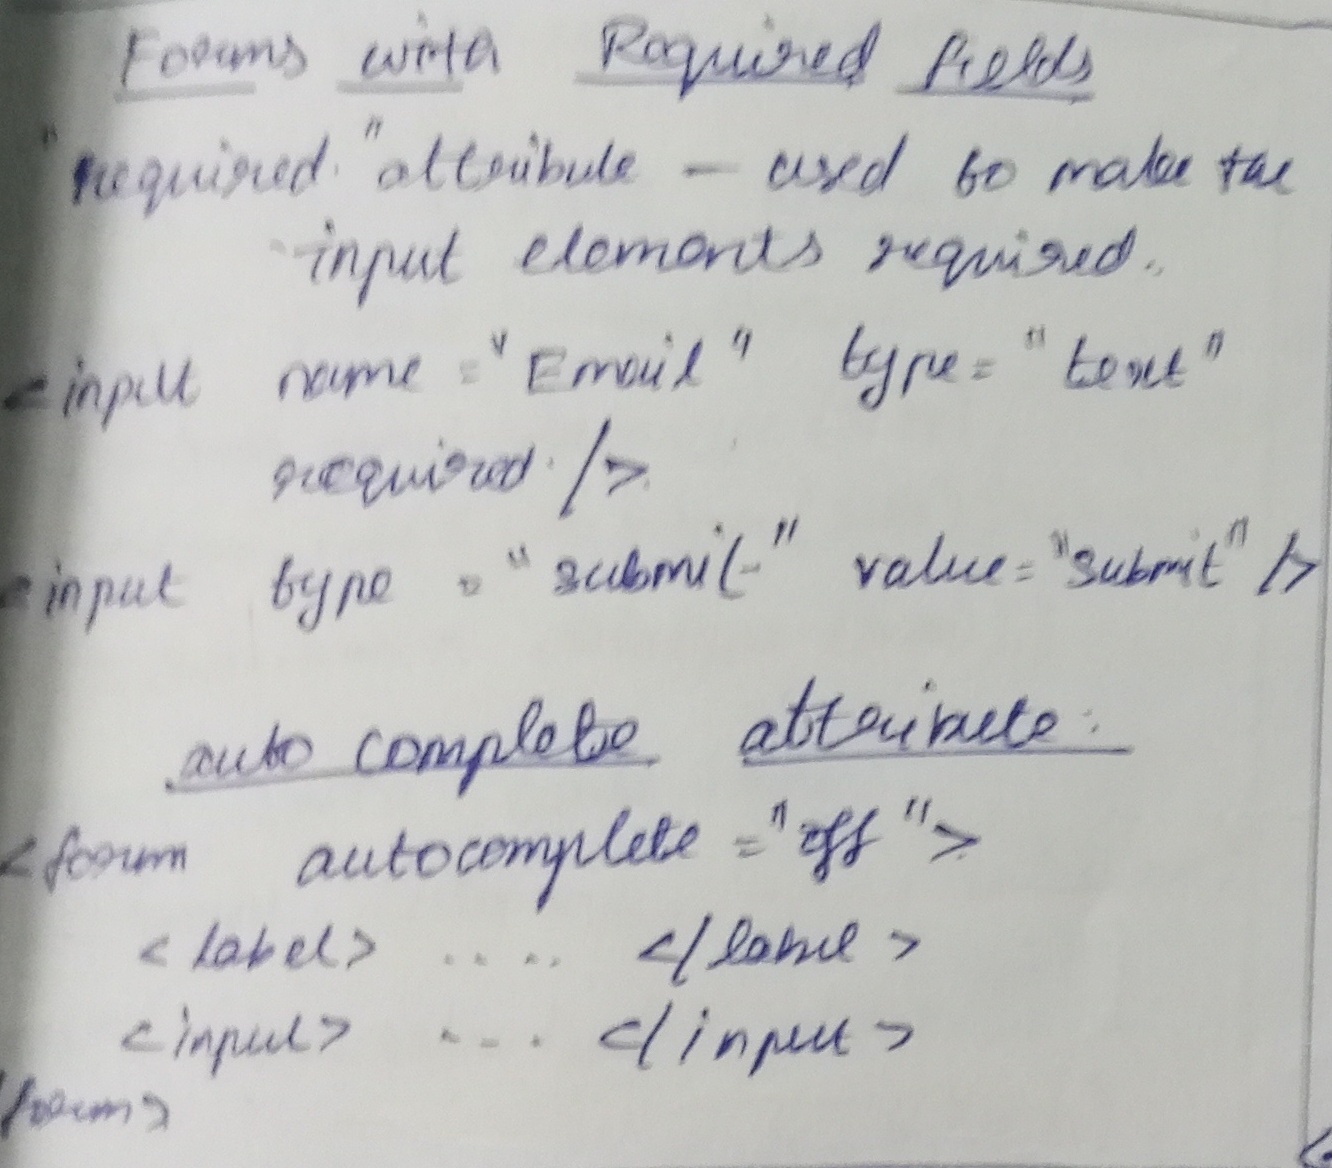 Forms with Required fields
"required" attribute – used to make the
input elements required.
<input name="Email" type="text"
required />
<input type="submit" value="submit" />
auto complete attribute:
<form autocomplete="off">
<label> .... </label>
<input> .... </input>
/form>